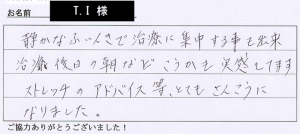 お名前 T.I 様
静かなふいんきで治療に集中する事も出来
治療後日の朝など こうかも実感してます
ストレッチのアドバイス等、とてもさんこうに
なりました。
ご協力ありがとうございました！